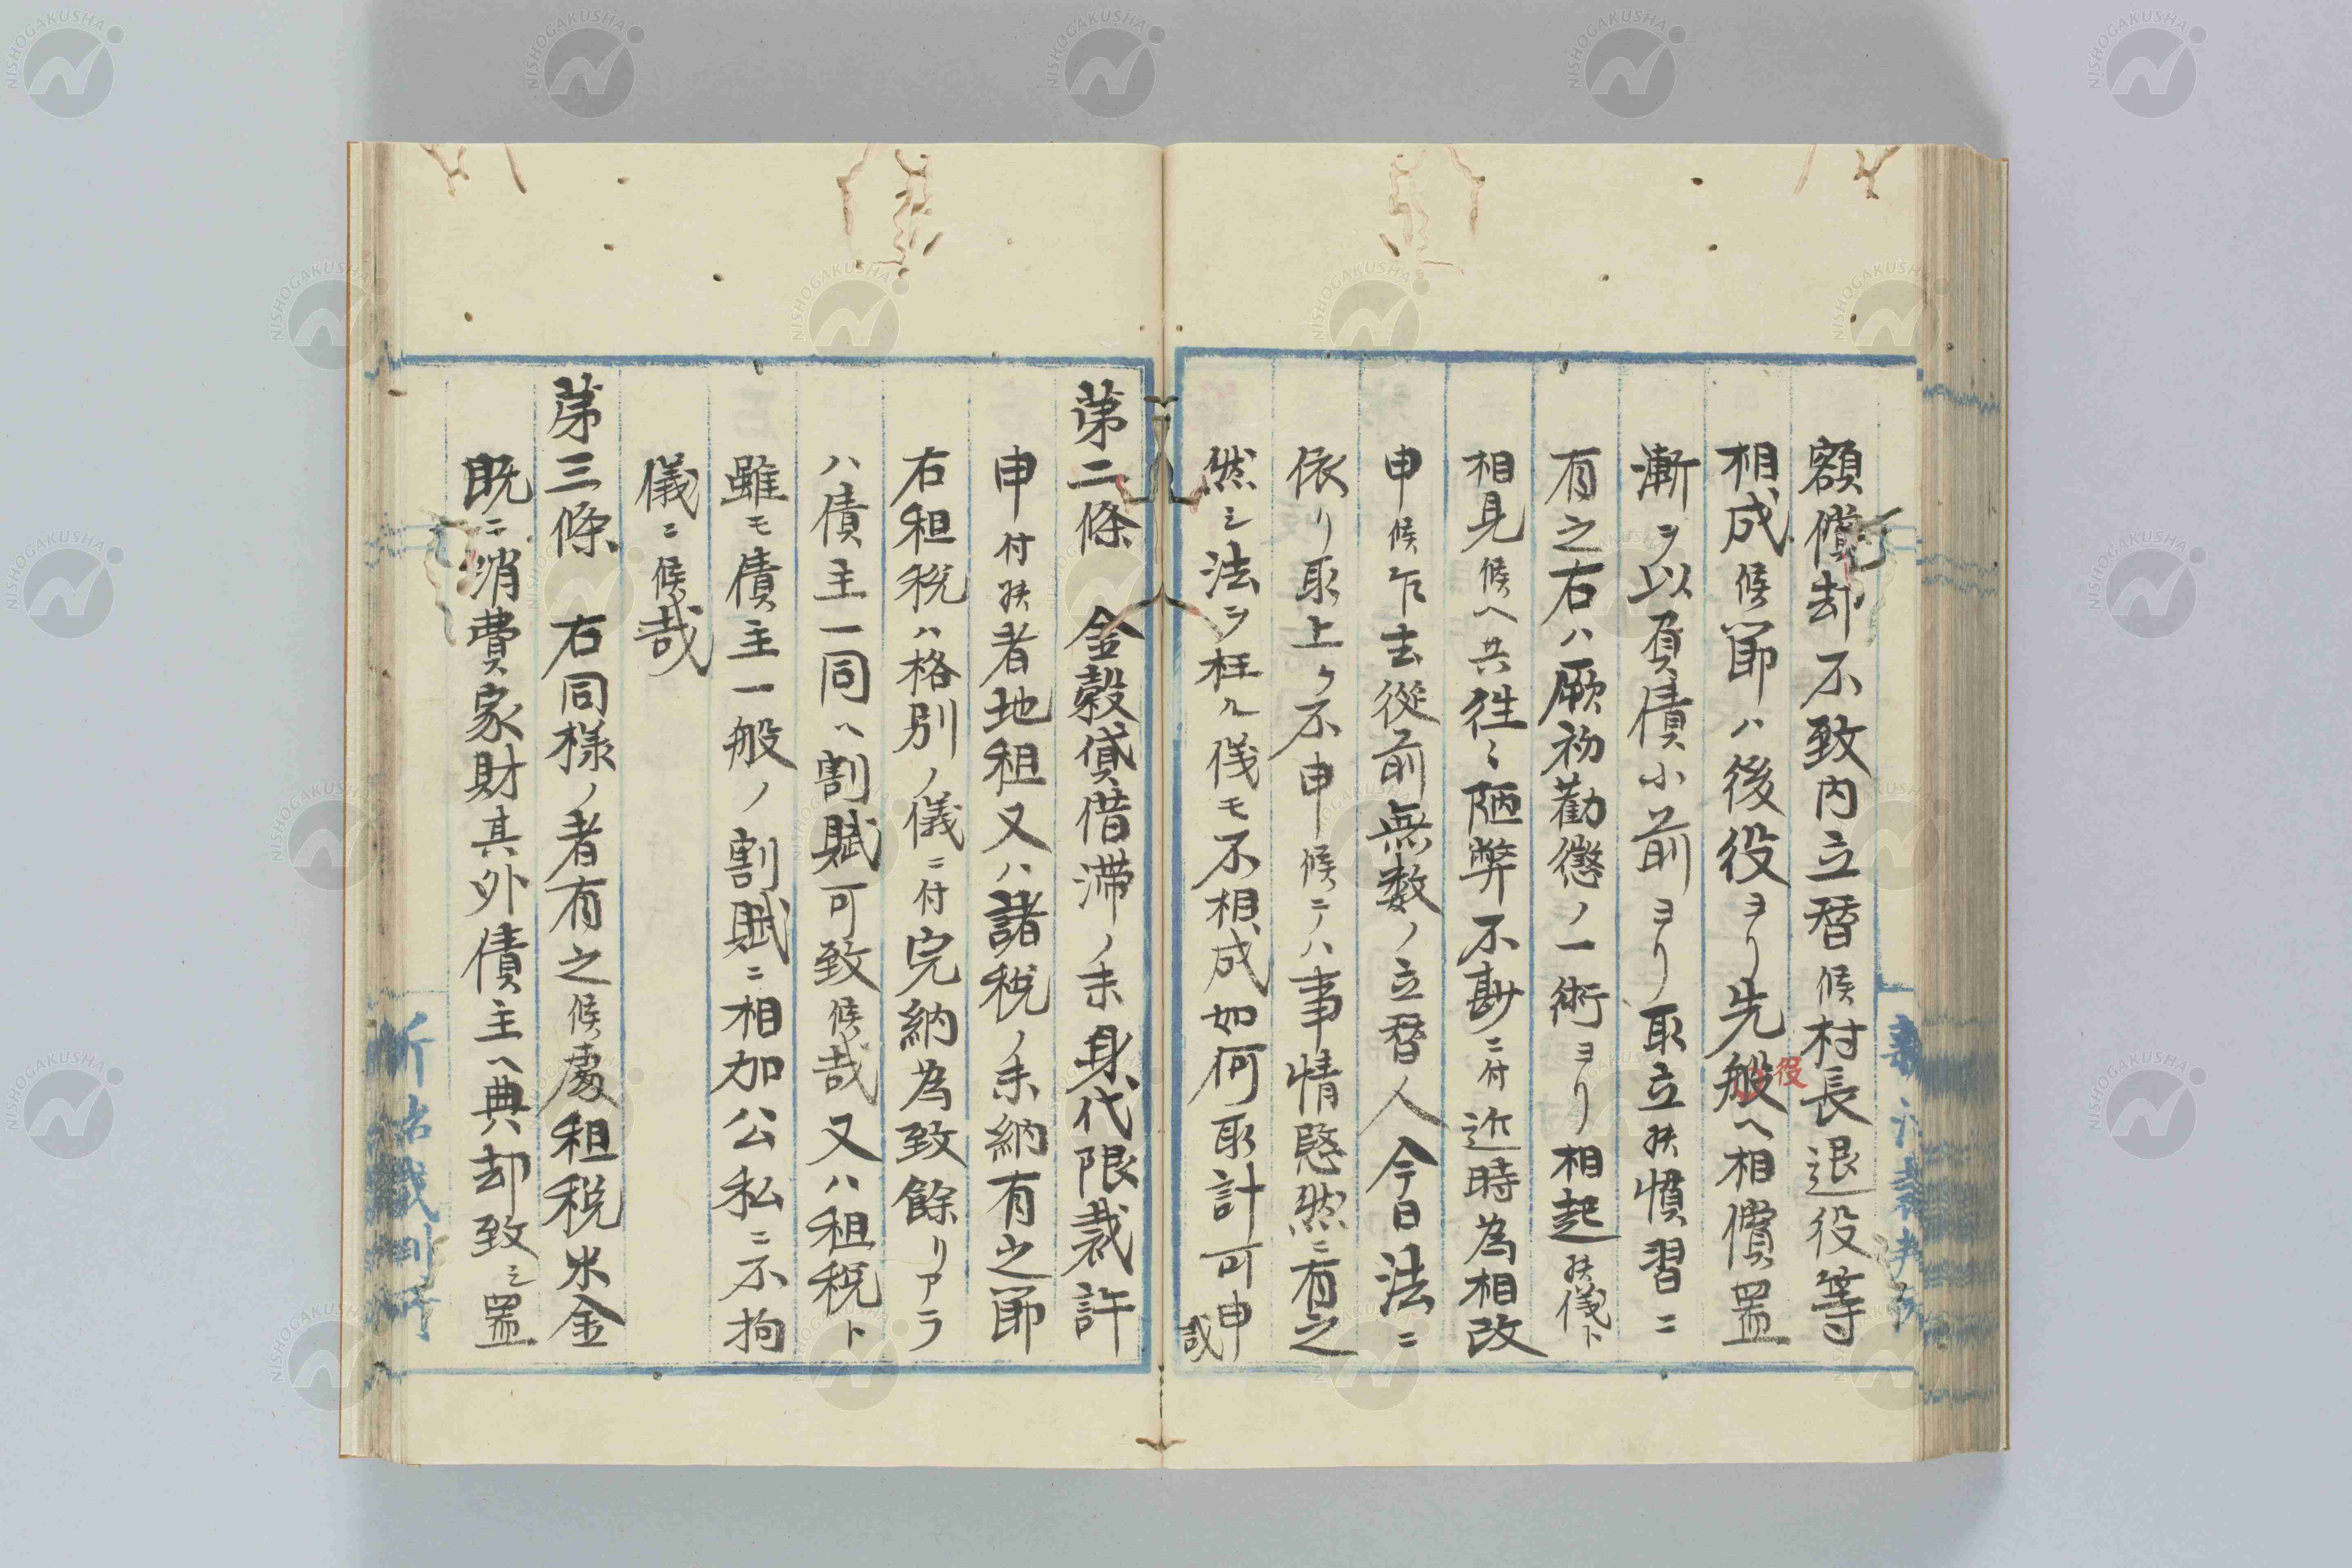 額償却不致内立替候村長退役等
相成候節ハ後役ヨリ先般役へ相償置
漸ヲ以負債小前ヨリ取立候慣習ニ
有之右ハ厥初勸懲ノ一術ヨリ相起候儀ト
相見候へ共往〻陋弊不尠ニ付近時為相改
申候乍去從前無数ノ立替人今日法ニ
依リ取上ケ不申候テハ事情愍然ニ有之
然シ法ヲ枉ル儀モ不相成如何取計可申哉
第二條 金穀貸借滞ノ末身代限裁許
申付候者地租又ハ諸税ノ未納有之節
右租税ハ格別ノ儀ニ付完納為致餘リアラ
ハ債主一同へ割賦可致候哉又ハ租税ト
雖モ債主一般ノ割賦ニ相加公私ニ不拘
儀ニ候哉
第三條 右同様ノ者有之候處租税米金
既ニ消費家財其外債主へ典却致シ置
NISHOGAKUSHA